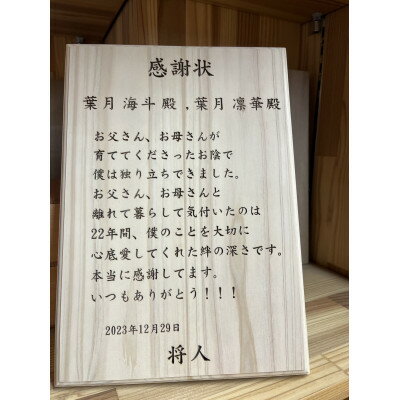 感謝状
葉月海斗殿,葉月凛華殿
お父さん、お母さんが
育ててくださったお陰で
僕は独り立ちできました。
お父さん、お母さんと
離れて暮らして気付いたのは
22年間、僕のことを大切に
心底愛してくれた絆の深さです。
本当に感謝してます。
いつもありがとう!!!
2023年12月29日
将人